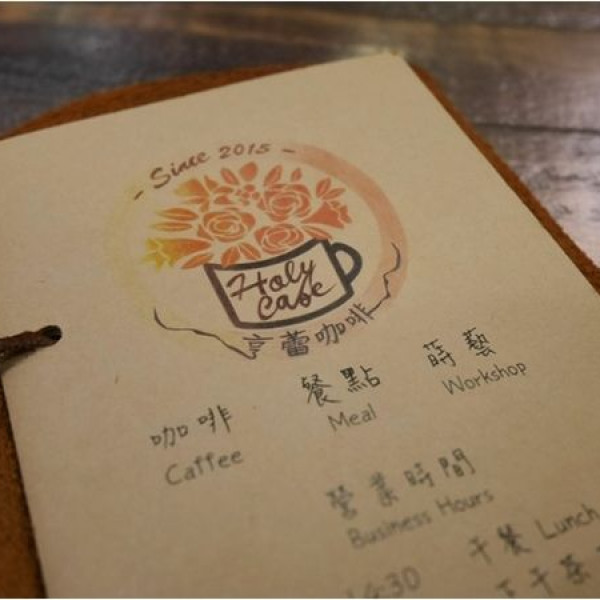 - Since 2015 -
Holy
Cafe
亨蕾咖啡
咖啡 餐點 蒔藝
Caffee Meal Workshop
營業時間
Business Hours
午餐 Lunch
下午茶